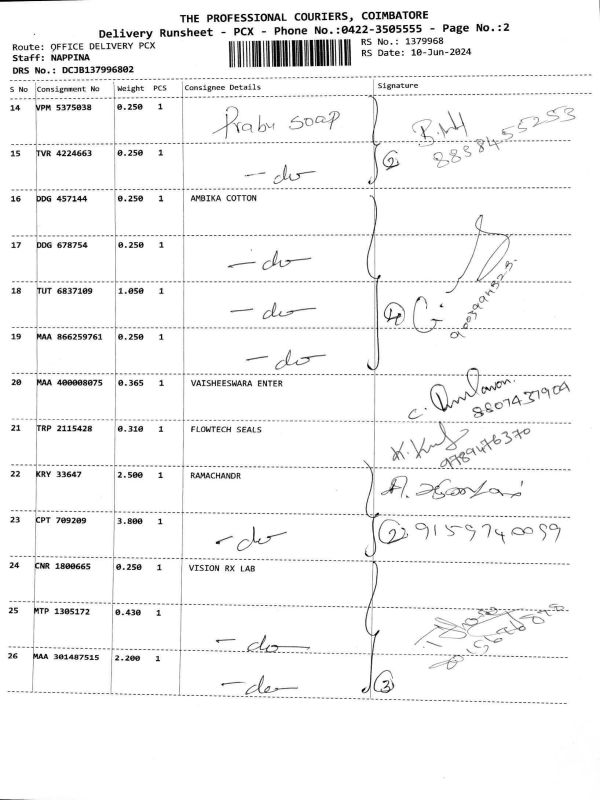 THE PROFESSIONAL COURIERS, COIMBATORE
Delivery Runsheet - PCX - Phone No.:0422-3505555 - Page No.:2
Route: OFFICE DELIVERY PCX
Staff: NAPPINA
DRS No.: DCJB137996802
RS No.: 1379968
RS Date: 10-Jun-2024
S No Consignment No Weight PCS Consignee Details Signature
14 VPM 5375038 0.250 1 Prabu soap
8838455253
15 TVR 4224663 0.250 1 - do - (2)
16 DDG 457144 0.250 1 AMBIKA COTTON
17 DDG 678754 0.250 1 - do -
18 TUT 6837109 1.050 1 - do - (4)
19 MAA 866259761 0.250 1 - do -
20 MAA 400008075 0.365 1 VAISHEESWARA ENTER
8807437904
21 TRP 2115428 0.310 1 FLOWTECH SEALS
9789476370
22 KRY 33647 2.500 1 RAMACHANDR
23 CPT 709209 3.800 1 - do - (2) 9159740059
24 CNR 1800665 0.250 1 VISION RX LAB
25 MTP 1305172 0.430 1 - do -
26 MAA 301487515 2.200 1 - do - (3)